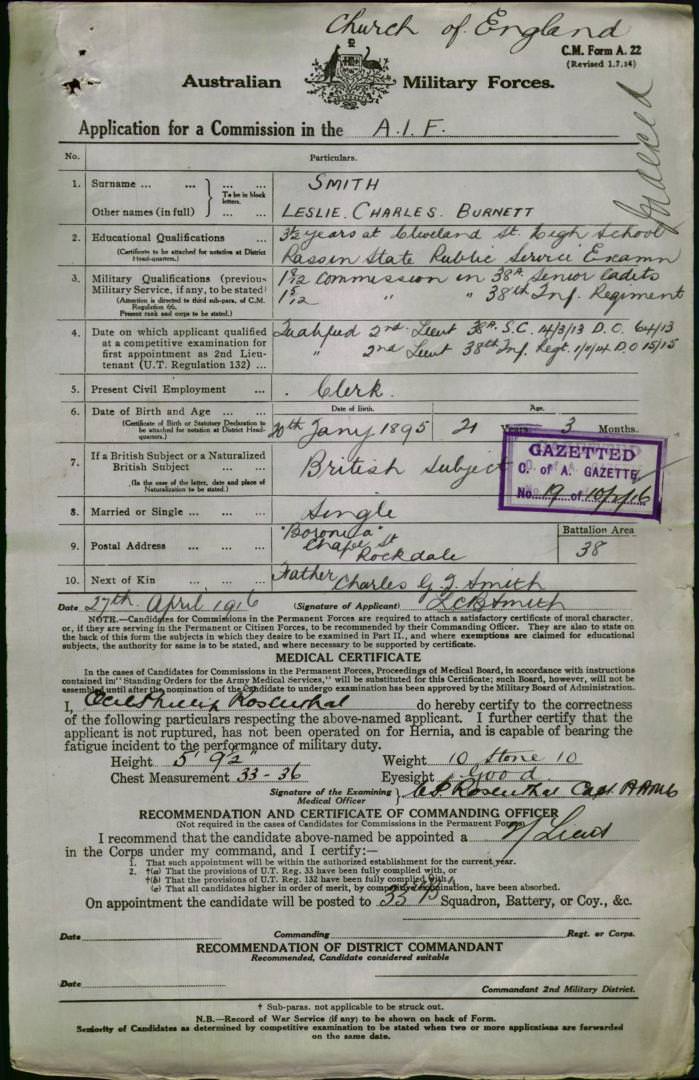 Church of England
C.M. Form A. 22
(Revised 1.7.14)
Australian Military Forces.
Indexed
Application for a Commission in the A.I.F.
No. Particulars.
1. Surname ... ... ... ... SMITH
To be in block letters.
Other names (in full) ... ... LESLIE. CHARLES. BURNETT
2. Educational Qualifications ... 3½ years at Cleveland St. High School
(Certificate to be attached for notation at District Head-quarters.) Pass in State Public Service Examn
3. Military Qualifications (previous Military Service, if any, to be stated) Commission in 38th Senior Cadets
(Attention is directed to third sub-para. of C.M. Regulation 66. " " 38th Inf. Regiment
Present rank and corps to be stated.)
4. Date on which applicant qualified Qualified 2nd Lieut 38th S.C. 14/3/13 D.O. 64/13
at a competitive examination for " 2nd Lieut 38th Inf. Regt. D.O 15/15
first appointment as 2nd Lieu-
tenant (U.T. Regulation 132) ...
5. Present Civil Employment ... Clerk.
6. Date of Birth and Age ... ... Date of Birth. Age.
(Certificate of Birth or Statutory Declaration to be attached for notation at District Head-quarters.) 20th Jany 1895 21 Years 3 Months.
GAZETTED
C. of A. GAZETTE
No. 19 of
7. If a British Subject or a Naturalized British Subject ... ... British Subject
(In the case of the latter, date and place of Naturalization to be stated.)
8. Married or Single ... ... ... Single
9. Postal Address ... ... ... "Boronia" Battalion Area
Chapel St 38
Rockdale
10. Next of Kin ... ... ... Father Charles G. J. Smith
Date 27th April 1916 (Signature of Applicant) L C B Smith
NOTE.—Candidates for Commissions in the Permanent Forces are required to attach a satisfactory certificate of moral character,
or, if they are serving in the Permanent or Citizen Forces, to be recommended by their Commanding Officer. They are also to state on
the back of this form the subjects in which they desire to be examined in Part II., and where exemptions are claimed for educational
subjects, the authority for same is to be stated, and where necessary to be supported by certificate.
MEDICAL CERTIFICATE
In the cases of Candidates for Commissions in the Permanent Forces, Proceedings of Medical Board, in accordance with instructions
contained in "Standing Orders for the Army Medical Services," will be substituted for this Certificate; such Board, however, will not be
assembled until after the nomination of the Candidate to undergo examination has been approved by the Military Board of Administration.
I, Cecil Phillip Rosenthal do hereby certify to the correctness
of the following particulars respecting the above-named applicant. I further certify that the
applicant is not ruptured, has not been operated on for Hernia, and is capable of bearing the
fatigue incident to the performance of military duty.
Height 5' 9½" Weight 10 Stone 10
Chest Measurement 33 - 36 Eyesight Good
Signature of the Examining Medical Officer C P Rosenthal Capt AAMC
RECOMMENDATION AND CERTIFICATE OF COMMANDING OFFICER
(Not required in the cases of Candidates for Commissions in the Permanent Forces)
I recommend that the candidate above-named be appointed a 2/Lieut
in the Corps under my command, and I certify:—
1. That such appointment will be within the authorized establishment for the current year.
2. †(a) That the provisions of U.T. Reg. 33 have been fully complied with, or
†(b) That the provisions of U.T. Reg. 132 have been fully complied with.
(c) That all candidates higher in order of merit, by competitive examination, have been absorbed.
On appointment the candidate will be posted to Squadron, Battery, or Coy., &c.
Date Commanding Regt. or Corps.
RECOMMENDATION OF DISTRICT COMMANDANT
Recommended, Candidate considered suitable
Date
Commandant 2nd Military District.
† Sub-paras. not applicable to be struck out.
N.B.—Record of War Service (if any) to be shown on back of Form.
Seniority of Candidates as determined by competitive examination to be stated when two or more applications are forwarded
on the same date.